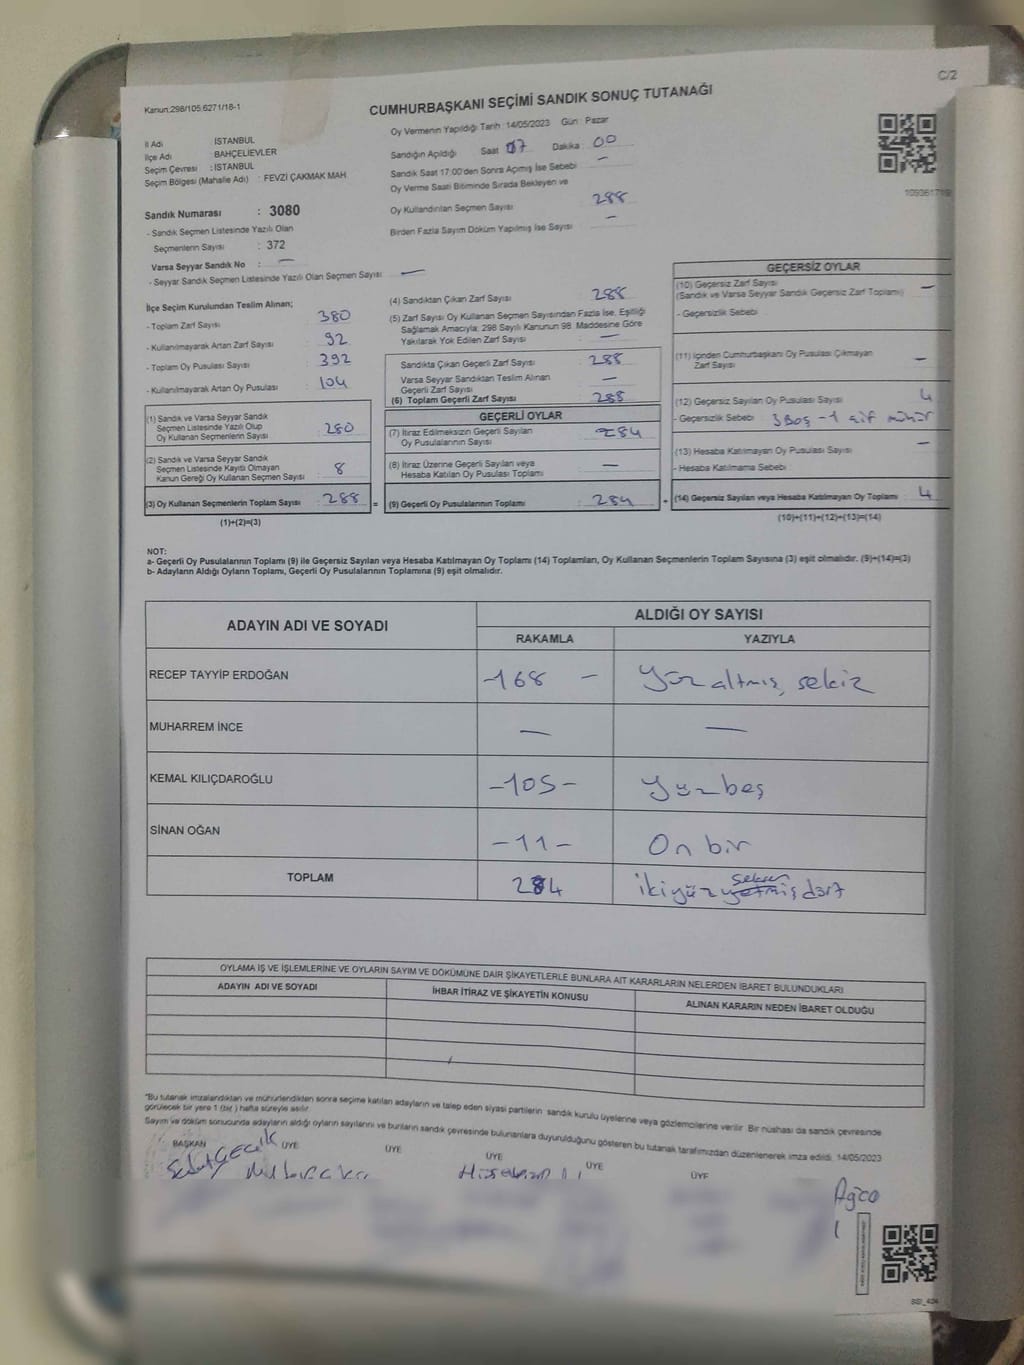 C/2
Kanun:298/105,6271/18-1
CUMHURBAŞKANI SEÇİMİ SANDIK SONUÇ TUTANAĞI
İl Adı İSTANBUL
İlçe Adı BAHÇELİEVLER
Seçim Çevresi : İSTANBUL
Seçim Bölgesi (Mahalle Adı) : FEVZİ ÇAKMAK MAH
Sandık Numarası : 3080
- Sandık Seçmen Listesinde Yazılı Olan
Seçmenlerin Sayısı : 372
Varsa Seyyar Sandık No : —
- Seyyar Sandık Seçmen Listesinde Yazılı Olan Seçmen Sayısı —
Oy Vermenin Yapıldığı Tarih : 14/05/2023 Gün : Pazar
Sandığın Açıldığı Saat 17 Dakika : 00
Sandık Saat 17:00'den Sonra Açımış İse Sebebi —
Oy Verme Saati Bitiminde Sırada Bekleyen ve
Oy Kullandırılan Seçmen Sayısı 288
Birden Fazla Sayım Döküm Yapılmış İse Sayısı —
İlçe Seçim Kurulundan Teslim Alınan;
- Toplam Zarf Sayısı : 380
- Kullanılmayarak Artan Zarf Sayısı : 92
- Toplam Oy Pusulası Sayısı : 392
- Kullanılmayarak Artan Oy Pusulası : 104
(1) Sandık ve Varsa Seyyar Sandık
Seçmen Listesinde Yazılı Olup
Oy Kullanan Seçmenlerin Sayısı : 280
(2) Sandık ve Varsa Seyyar Sandık
Seçmen Listesinde Kayıtlı Olmayan
Kanun Gereği Oy Kullanan Seçmen Sayısı : 8
(3) Oy Kullanan Seçmenlerin Toplam Sayısı : 288 =
(1)+(2)=(3)
(4) Sandıktan Çıkan Zarf Sayısı : 288
(5) Zarf Sayısı Oy Kullanan Seçmen Sayısından Fazla İse, Eşitliği
Sağlamak Amacıyla; 298 Sayılı Kanunun 98. Maddesine Göre
Yakılarak Yok Edilen Zarf Sayısı : —
Sandıkta Çıkan Geçerli Zarf Sayısı : 288
Varsa Seyyar Sandıktan Teslim Alınan
Geçerli Zarf Sayısı : —
(6) Toplam Geçerli Zarf Sayısı : 288
GEÇERLİ OYLAR
(7) İtiraz Edilmeksizin Geçerli Sayılan
Oy Pusulalarının Sayısı : 284
(8) İtiraz Üzerine Geçerli Sayılan veya
Hesaba Katılan Oy Pusulası Toplamı : —
(9) Geçerli Oy Pusulalarının Toplamı : 284 +
GEÇERSİZ OYLAR
(10) Geçersiz Zarf Sayısı
(Sandık ve Varsa Seyyar Sandık Geçersiz Zarf Toplamı) : —
- Geçersizlik Sebebi :
(11) İçinden Cumhurbaşkanı Oy Pusulası Çıkmayan
Zarf Sayısı : —
(12) Geçersiz Sayılan Oy Pusulası Sayısı : 4
- Geçersizlik Sebebi : 3 Boş - 1 çift mühür
(13) Hesaba Katılmayan Oy Pusulası Sayısı : —
- Hesaba Katılmama Sebebi :
(14) Geçersiz Sayılan veya Hesaba Katılmayan Oy Toplamı : 4
(10)+(11)+(12)+(13)=(14)
NOT:
a- Geçerli Oy Pusulalarının Toplamı (9) ile Geçersiz Sayılan veya Hesaba Katılmayan Oy Toplamı (14) Toplamları, Oy Kullanan Seçmenlerin Toplam Sayısına (3) eşit olmalıdır. (9)+(14)=(3)
b- Adayların Aldığı Oyların Toplamı, Geçerli Oy Pusulalarının Toplamına (9) eşit olmalıdır.
ADAYIN ADI VE SOYADI ALDIĞI OY SAYISI
RAKAMLA YAZIYLA
RECEP TAYYİP ERDOĞAN -168 - Yüz altmış sekiz
MUHARREM İNCE — —
KEMAL KILIÇDAROĞLU -105- Yüzbeş
SİNAN OĞAN -11- On bir
TOPLAM 284 ikiyüz seksen dört
OYLAMA İŞ VE İŞLEMLERİNE VE OYLARIN SAYIM VE DÖKÜMÜNE DAİR ŞİKAYETLERLE BUNLARA AİT KARARLARIN NELERDEN İBARET BULUNDUKLARI
ADAYIN ADI VE SOYADI İHBAR İTİRAZ VE ŞİKAYETİN KONUSU ALINAN KARARIN NEDEN İBARET OLDUĞU
"Bu tutanak imzalandıktan ve mühürlendikten sonra seçime katılan adayların ve talep eden siyasi partilerin sandık kurulu üyelerine veya gözlemcilerine verilir. Bir nüshası da sandık çevresinde
görülecek bir yere 1 (bir) hafta süreyle asılır.
Sayım ve döküm sonucunda adayların aldığı oyların sayılarını ve bunların sandık çevresinde bulunanlara duyurulduğunu gösteren bu tutanak tarafımızdan düzenlenerek imza edildi. 14/05/2023
BAŞKAN ÜYE ÜYE ÜYE ÜYE ÜYE